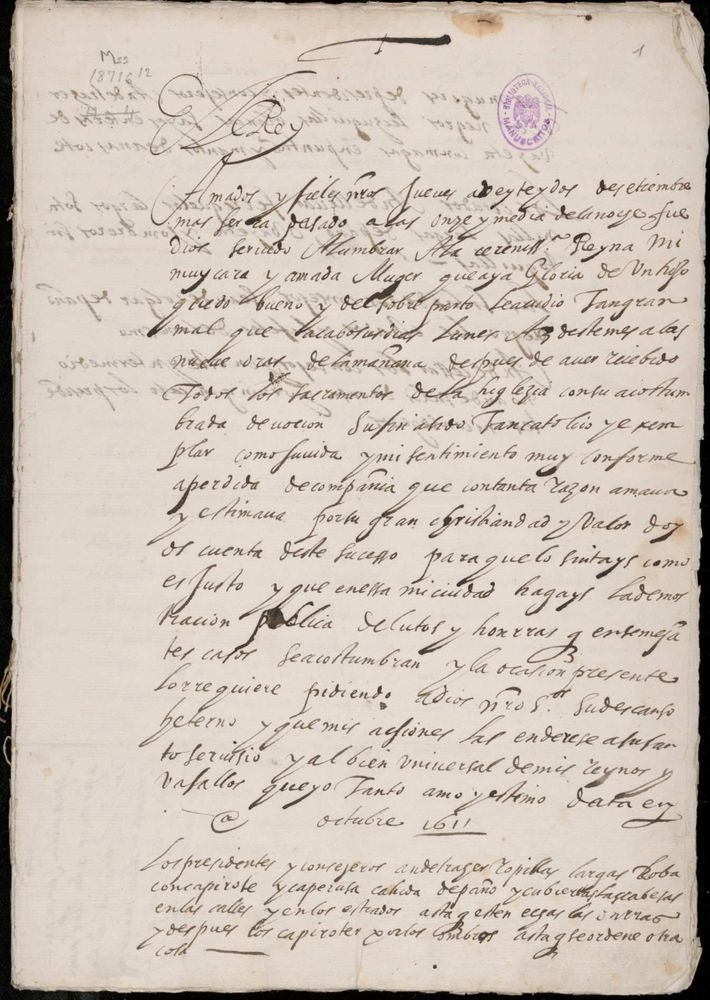 Mss
18716/12
1
BIBLIOTECA NACIONAL
MANUSCRITOS
El Rey
Amados y fieles nros Jueves a veyte y dos de setiembre
mas serca pasado a las onze y media de la noche fue
Dios servido Alumbrar A la sereniss.ª Reyna Mi
muy cara y amada Muger que aya Gloria de Un hijo
quedo bueno y del sobre parto le acudio Tan gran
mal que acabo sus dias Lunes A 3 deste mes a las
nueve oras de la mañana despues de aver recebido
Todos los sacramentos de la higlezia con su acostum
brada devocion Su fin a sido Tan catolico y exem
plar como su vida y mi sentimiento muy conforme
a perdida de compañia que con tanta razon amava
y estimava por su gran christiandad y Valor doy
os cuenta deste sucesso para que lo sintays como
es Justo y que en essa mi ciudad hagays la demos
tracion publica de lutos y honrras q en semeja
tes casos se acostumbran y la ocasion presente
lo rrequiere pidiendo a dios nro S.or su descanso
heterno y que mis acsiones las enderese a su san
to servisio y al bien universal de mis reynos y
vasallos que yo Tanto amo y estimo data en
@ octubre 1611
Los presidentes y consejeros an de traher ropillas largas Loba
con capirote y caperusa cahida de paño y cubiertas las cabesas
en las calles y en los estrados asta q esten echas las onrras
y despues los capirotes por los ombros asta q se ordene otra
cosa